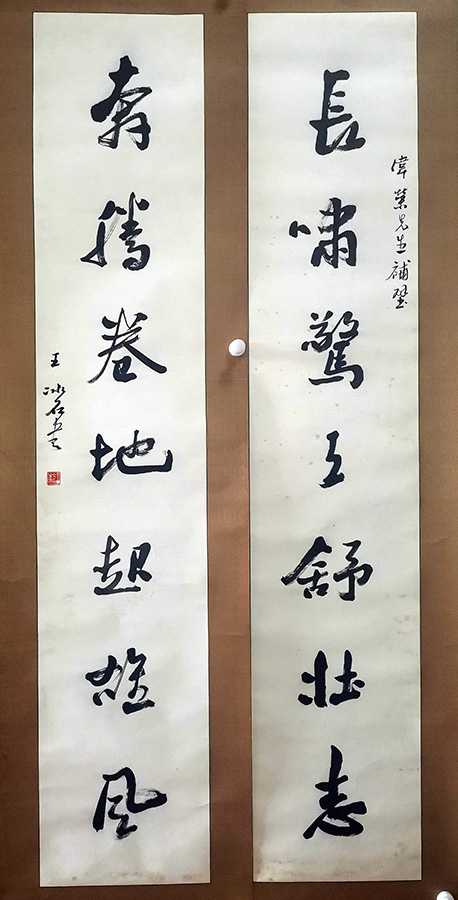 長嘯驚天舒壯志
偉榮先生補壁
奔騰卷地起雄風
王冰石書